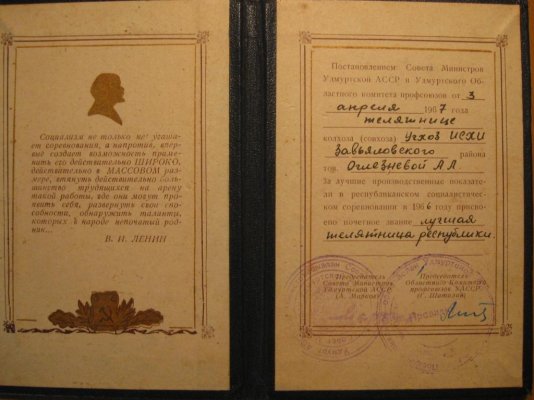 Социализм не только не угаша-
ет соревнования, а напротив, впер-
вые создает возможность приме-
нить его действительно ШИРОКО,
действительно в МАССОВОМ раз-
мере, втянуть действительно боль-
шинство трудящихся на арену
такой работы, где они могут про-
явить себя, развернуть свои спо-
собности, обнаружить таланты,
которых в народе непочатый род-
ник...
В. И. ЛЕНИН
Постановлением Совета Министров
Удмуртской АССР и Удмуртского Об-
ластного комитета профсоюзов от 3
апреля 1967 года
телятнице
колхоза (совхоза) Учхоз ИСХИ
Завьяловского района
тов. Оглезневой А.А.
за лучшие производственные показате-
ли в республиканском социалистичес-
ком соревновании в 1966 году присво-
ено почетное звание лучшая
телятница республики.
Председатель
Совета Министров
Удмуртской АССР
Председатель
Областного Комитета
профсоюзов УАССР